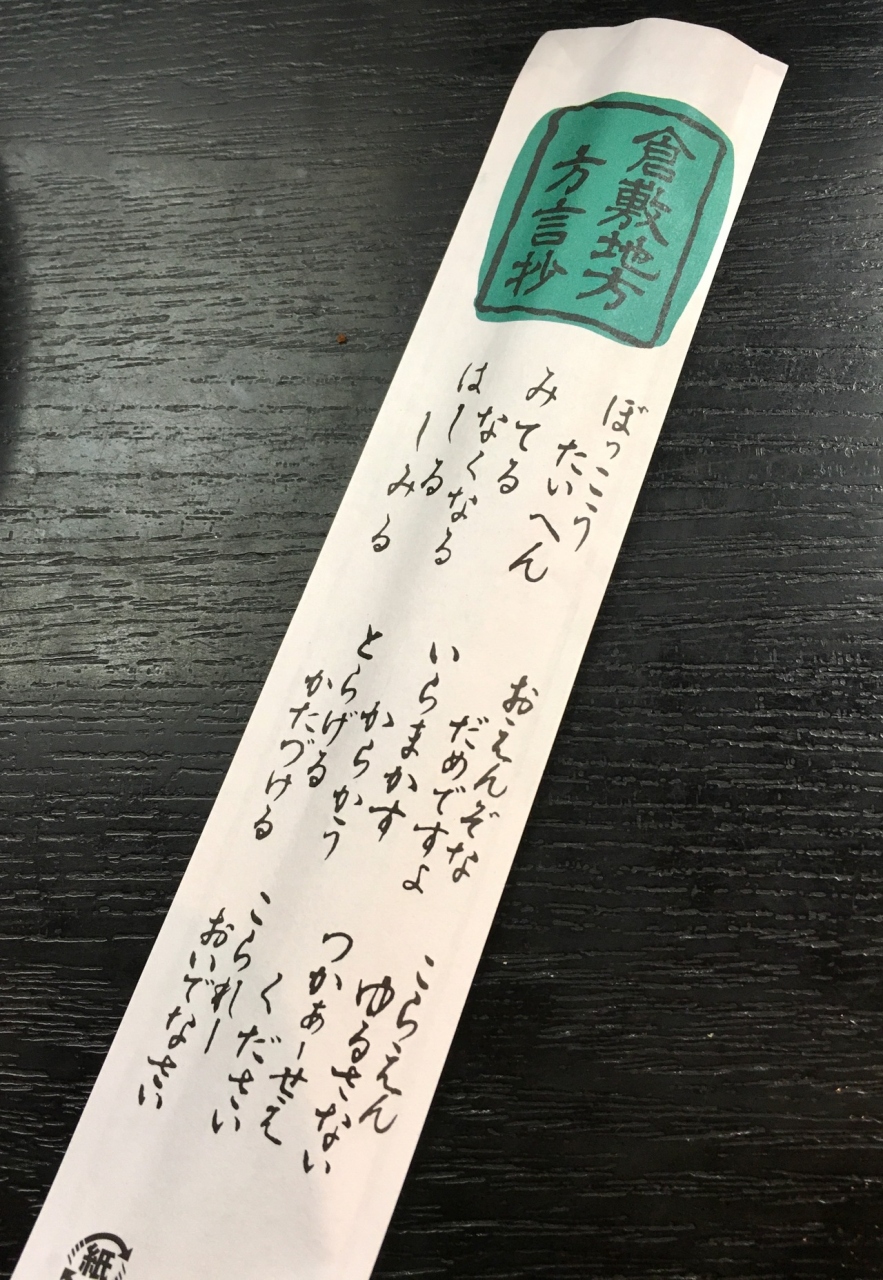 倉敷地方
方言抄
ぼっこう
たいへん
みてる
なくなる
はしる
しみる
おえんぞな
だめですよ
いらまかす
からかう
とらげる
かたづける
こらえん
ゆるさない
つかあーせえ
ください
こられー
おいでなさい
紙